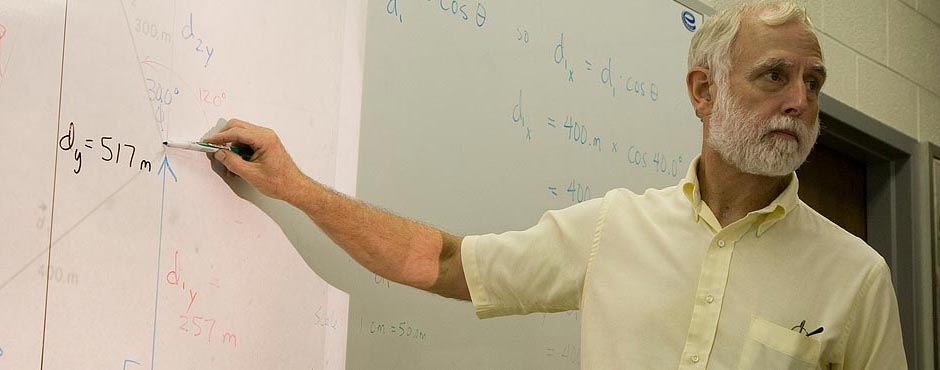 300.m
d2y
30.0°
120°
dy = 517 m
400.m
d1y =
257 m
d1 · cos θ
so
d1x = d1 · cos θ
d1x = 400.m × cos 40.0°
= 400
1 cm = 50.0m